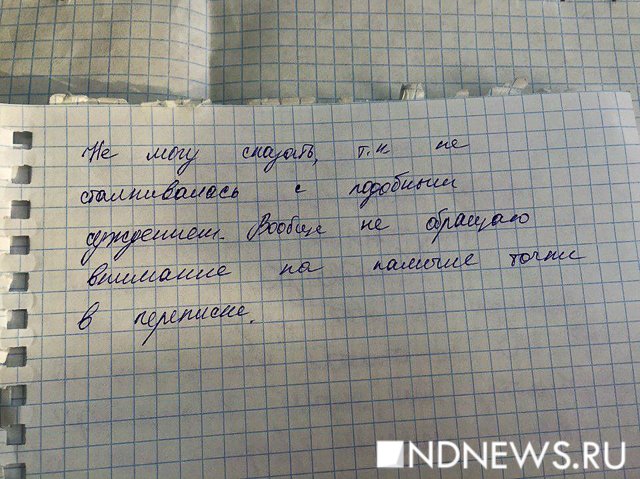 Не могу сказать, т.к не
сталкивалась с подобным
суждением. Вообще не обращаю
внимание на наличие точки
в переписке.
NDNEWS.RU